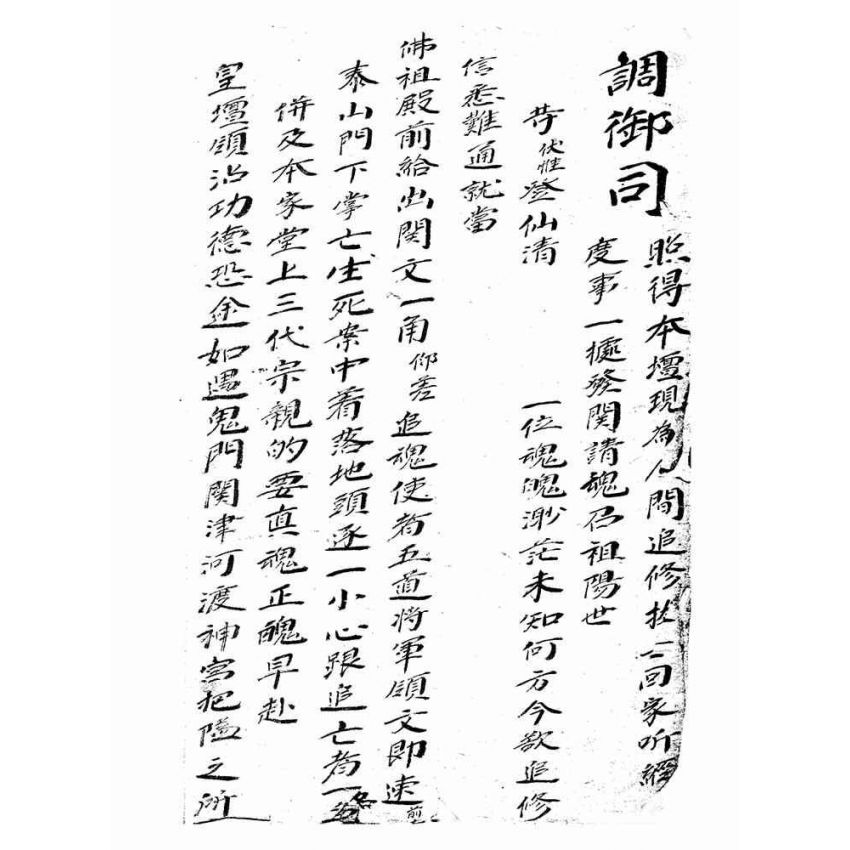 調御司
照得本壇現為人間追修拔亡回家听經
度事一據發關請魂召祖陽世
昔伏惟登仙清 一位魂魄渺茫未知何方今欲追修
信悉難通就當
佛祖殿前給出関文一角仰差追魂使者五道將軍領文即速前
泰山門下掌亡生死案中着落地頭逐一小心跟追亡者一名
併及本家堂上三代宗親的要真魂正魄早赴
皇壇領沾功德恐途如遇鬼門関津河渡神宫把隘之所